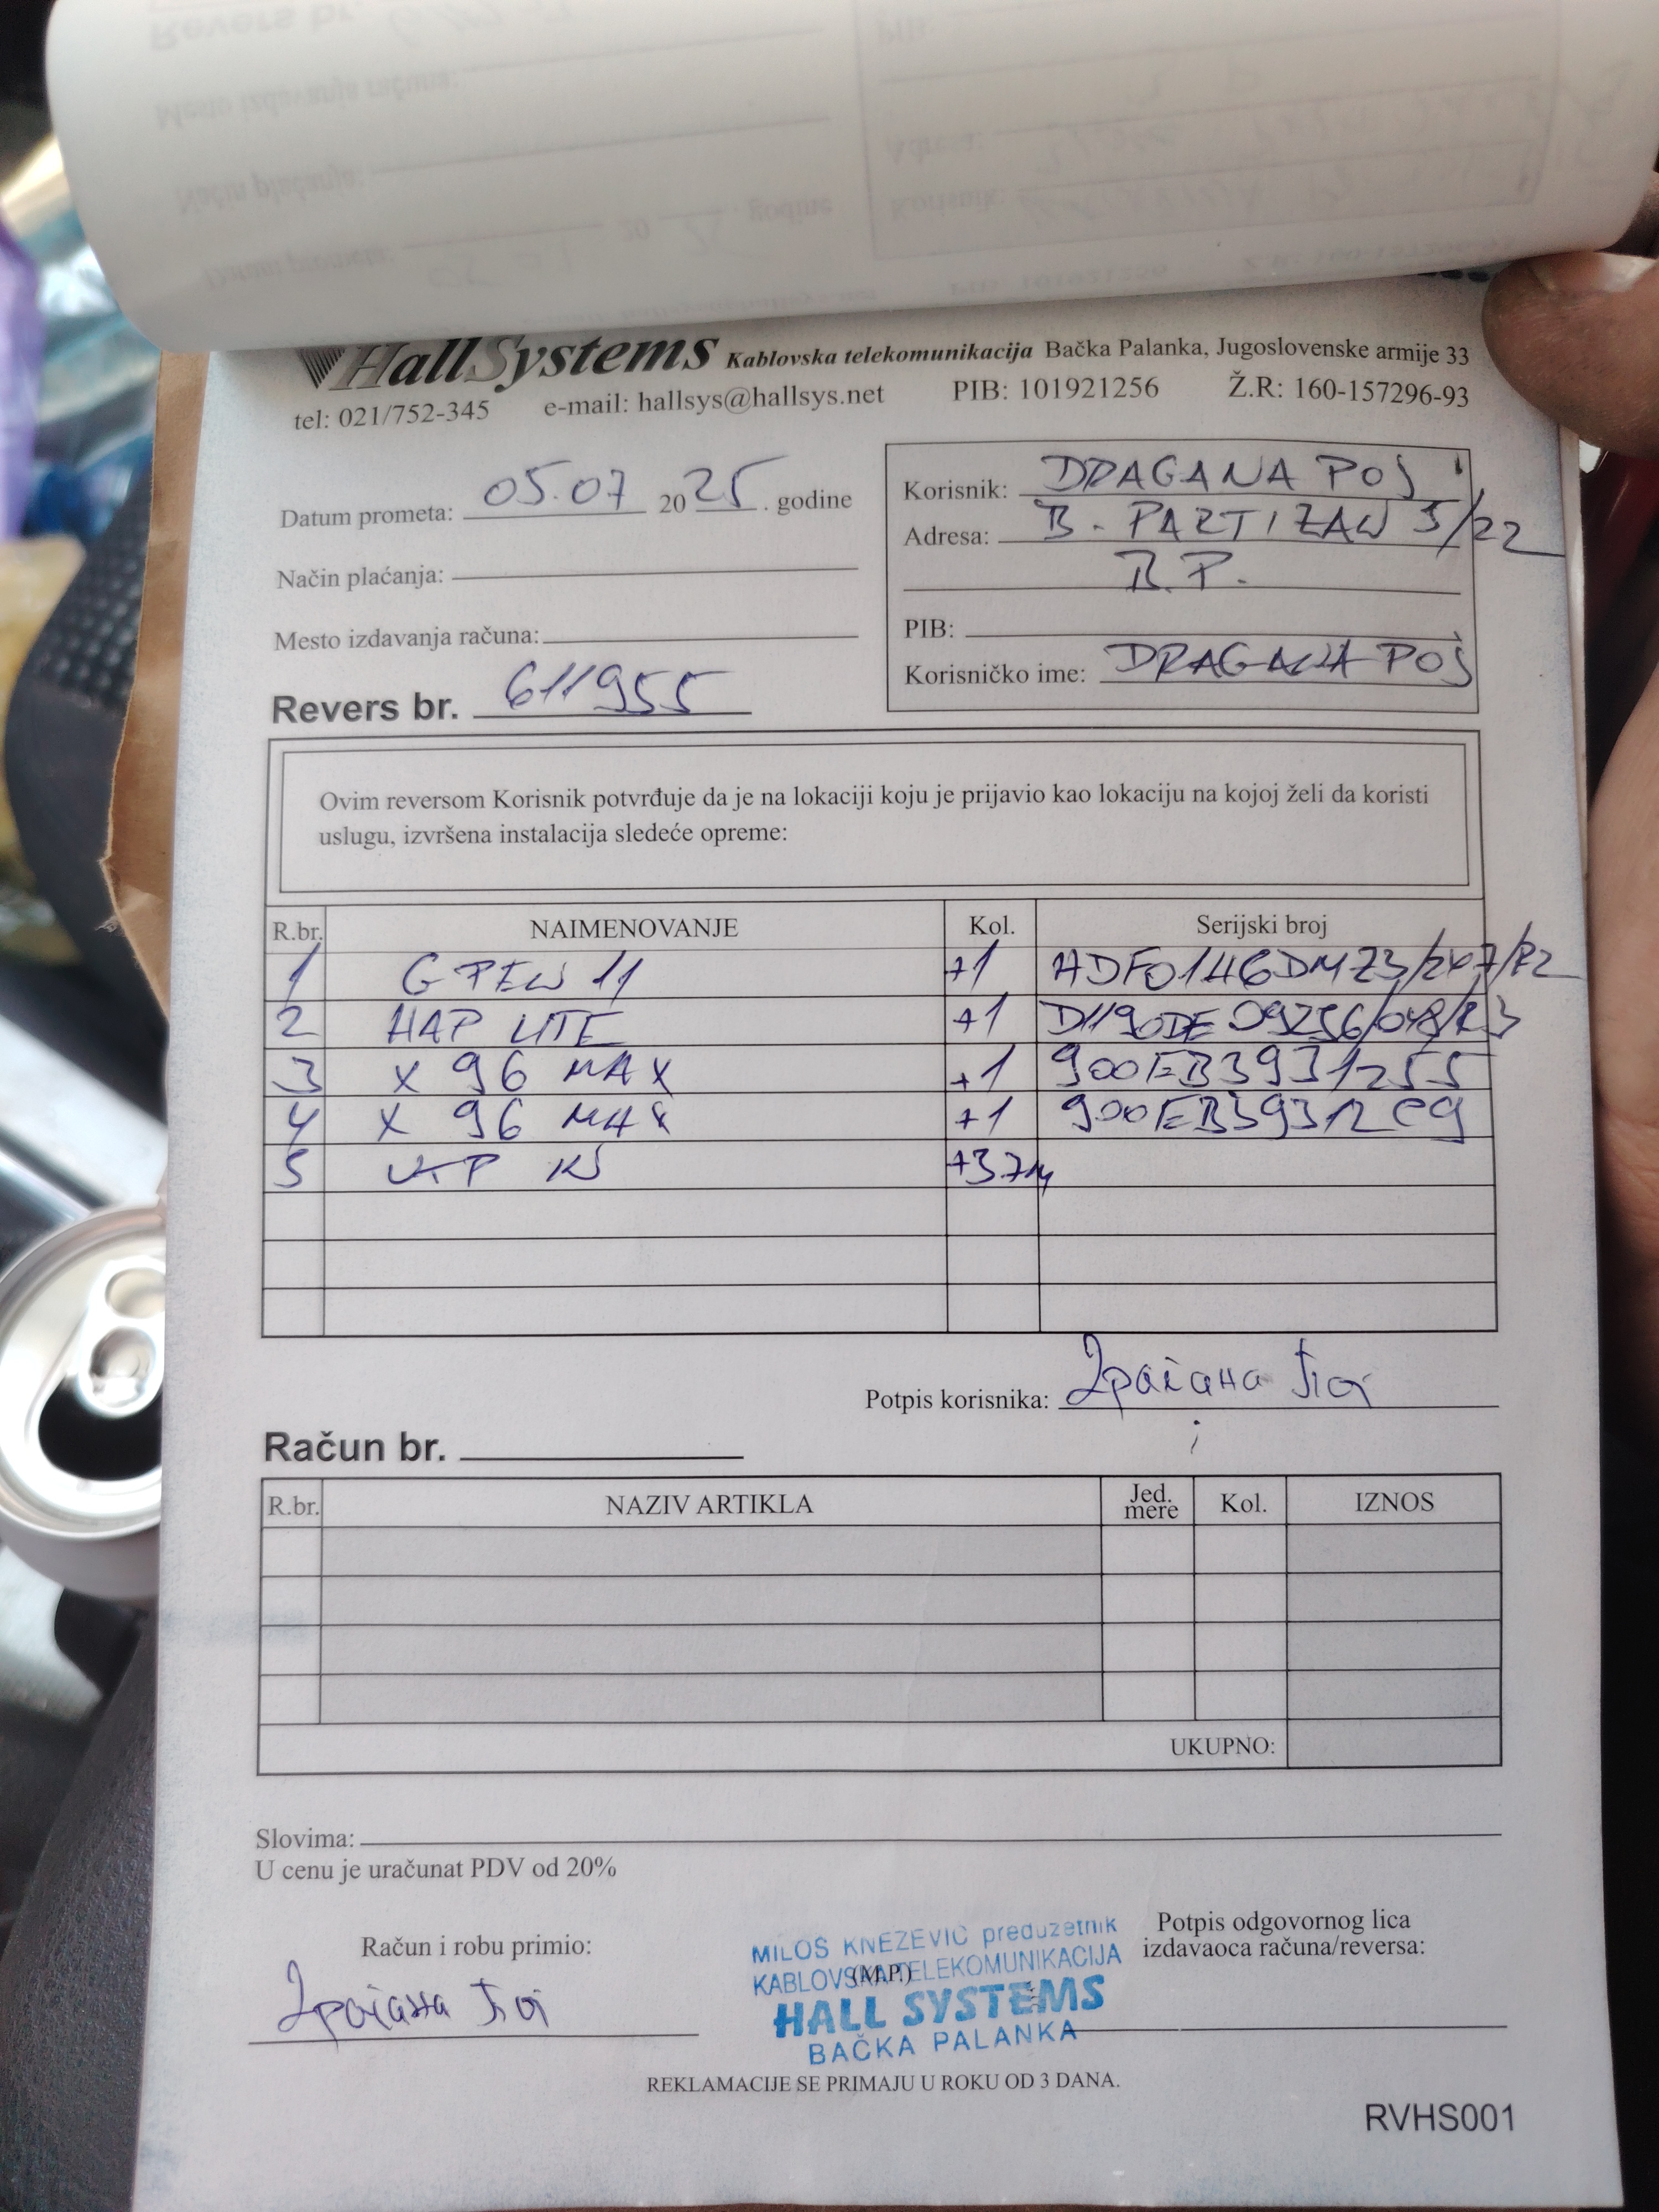 HallSystems Kablovska telekomunikacija Bačka Palanka, Jugoslovenske armije 33
tel: 021/752-345 e-mail: hallsys@hallsys.net PIB: 101921256 Ž.R: 160-157296-93
Datum prometa: 05.07 2025. godine
Način plaćanja:
Mesto izdavanja računa:
Revers br. 611955
Korisnik: DRAGANA POJ
Adresa: B. PARTIZAN 5/22
B.P.
PIB:
Korisničko ime: DRAGANA POJ
Ovim reversom Korisnik potvrđuje da je na lokaciji koju je prijavio kao lokaciju na kojoj želi da koristi
uslugu, izvršena instalacija sledeće opreme:
R.br. NAIMENOVANJE Kol. Serijski broj
1 G PEW 11 +1
2 HAP LITE +1
3 X 96 MAX +1 900EB3931255
4 X 96 MAX +1 900EB39312C9
5 UTP +37m
Potpis korisnika: Драгана Пој
Račun br.
R.br. NAZIV ARTIKLA Jed. mere Kol. IZNOS
UKUPNO:
Slovima:
U cenu je uračunat PDV od 20%
Račun i robu primio:
Драгана Пој
MILOŠ KNEŽEVIĆ preduzetnik
KABLOVSKA TELEKOMUNIKACIJA
(M.P.)
HALL SYSTEMS
BAČKA PALANKA
Potpis odgovornog lica
izdavaoca računa/reversa:
REKLAMACIJE SE PRIMAJU U ROKU OD 3 DANA.
RVHS001